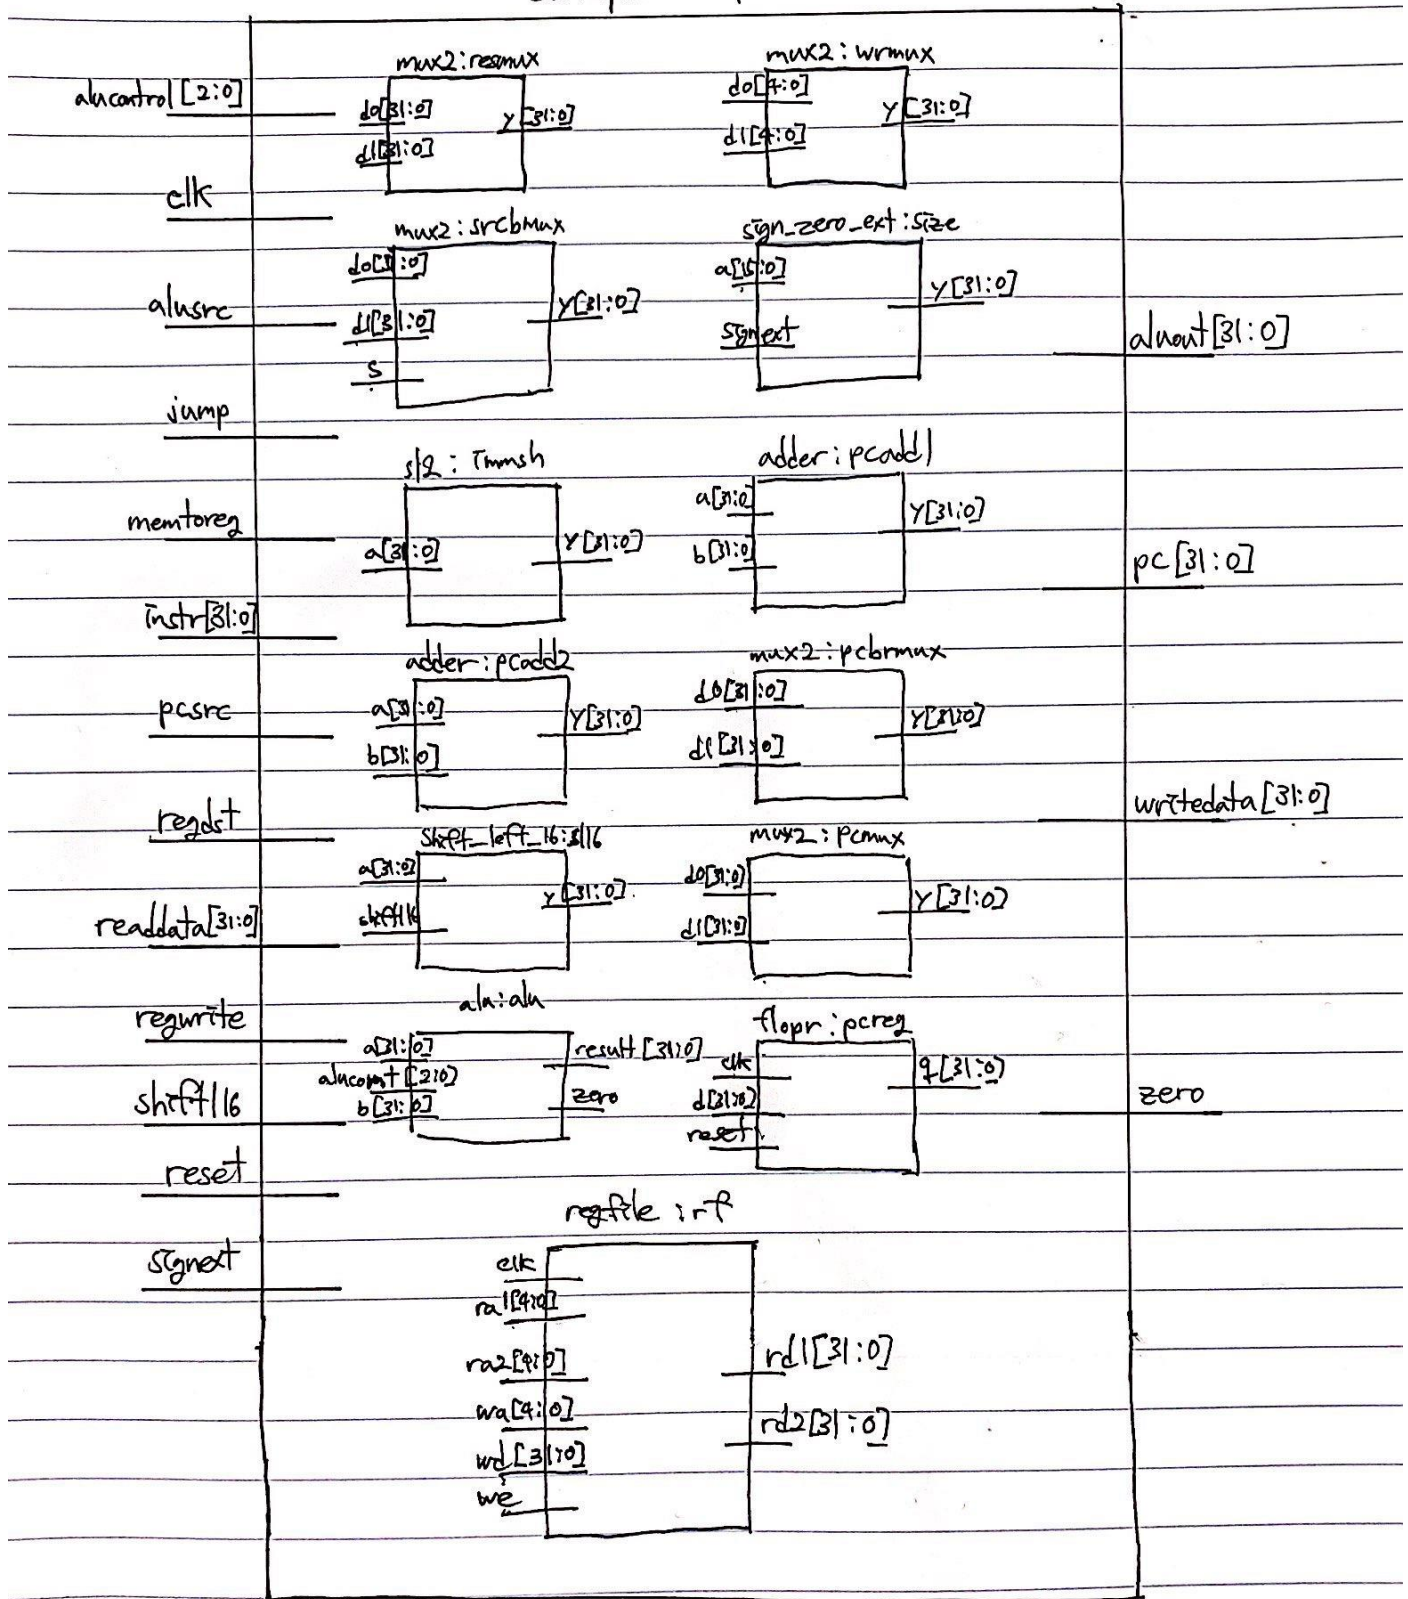 alucontrol[2:0]
clk
alusrc
jump
memtoreg
instr[31:0]
pcsrc
regdst
readdata[31:0]
regwrite
shiftl16
reset
signext
mux2:resmux
d0[31:0]
d1[31:0]
y[31:0]
mux2:wrmux
d0[4:0]
d1[4:0]
y[31:0]
mux2:srcbmux
d0[31:0]
d1[31:0]
s
y[31:0]
sign_zero_ext:size
a[15:0]
signext
y[31:0]
sl2:immsh
a[31:0]
y[31:0]
adder:pcadd1
a[31:0]
b[31:0]
y[31:0]
adder:pcadd2
a[31:0]
b[31:0]
y[31:0]
mux2:pcbrmux
d0[31:0]
d1[31:0]
y[31:0]
shift_left_16:sl16
a[31:0]
shiftl16
y[31:0]
mux2:pcmux
d0[31:0]
d1[31:0]
y[31:0]
alu:alu
a[31:0]
alucont[2:0]
b[31:0]
result[31:0]
zero
flopr:pcreg
clk
d[31:0]
reset
q[31:0]
regfile:rf
clk
ra1[4:0]
ra2[4:0]
wa[4:0]
wd[31:0]
we
rd1[31:0]
rd2[31:0]
aluout[31:0]
pc[31:0]
writedata[31:0]
zero